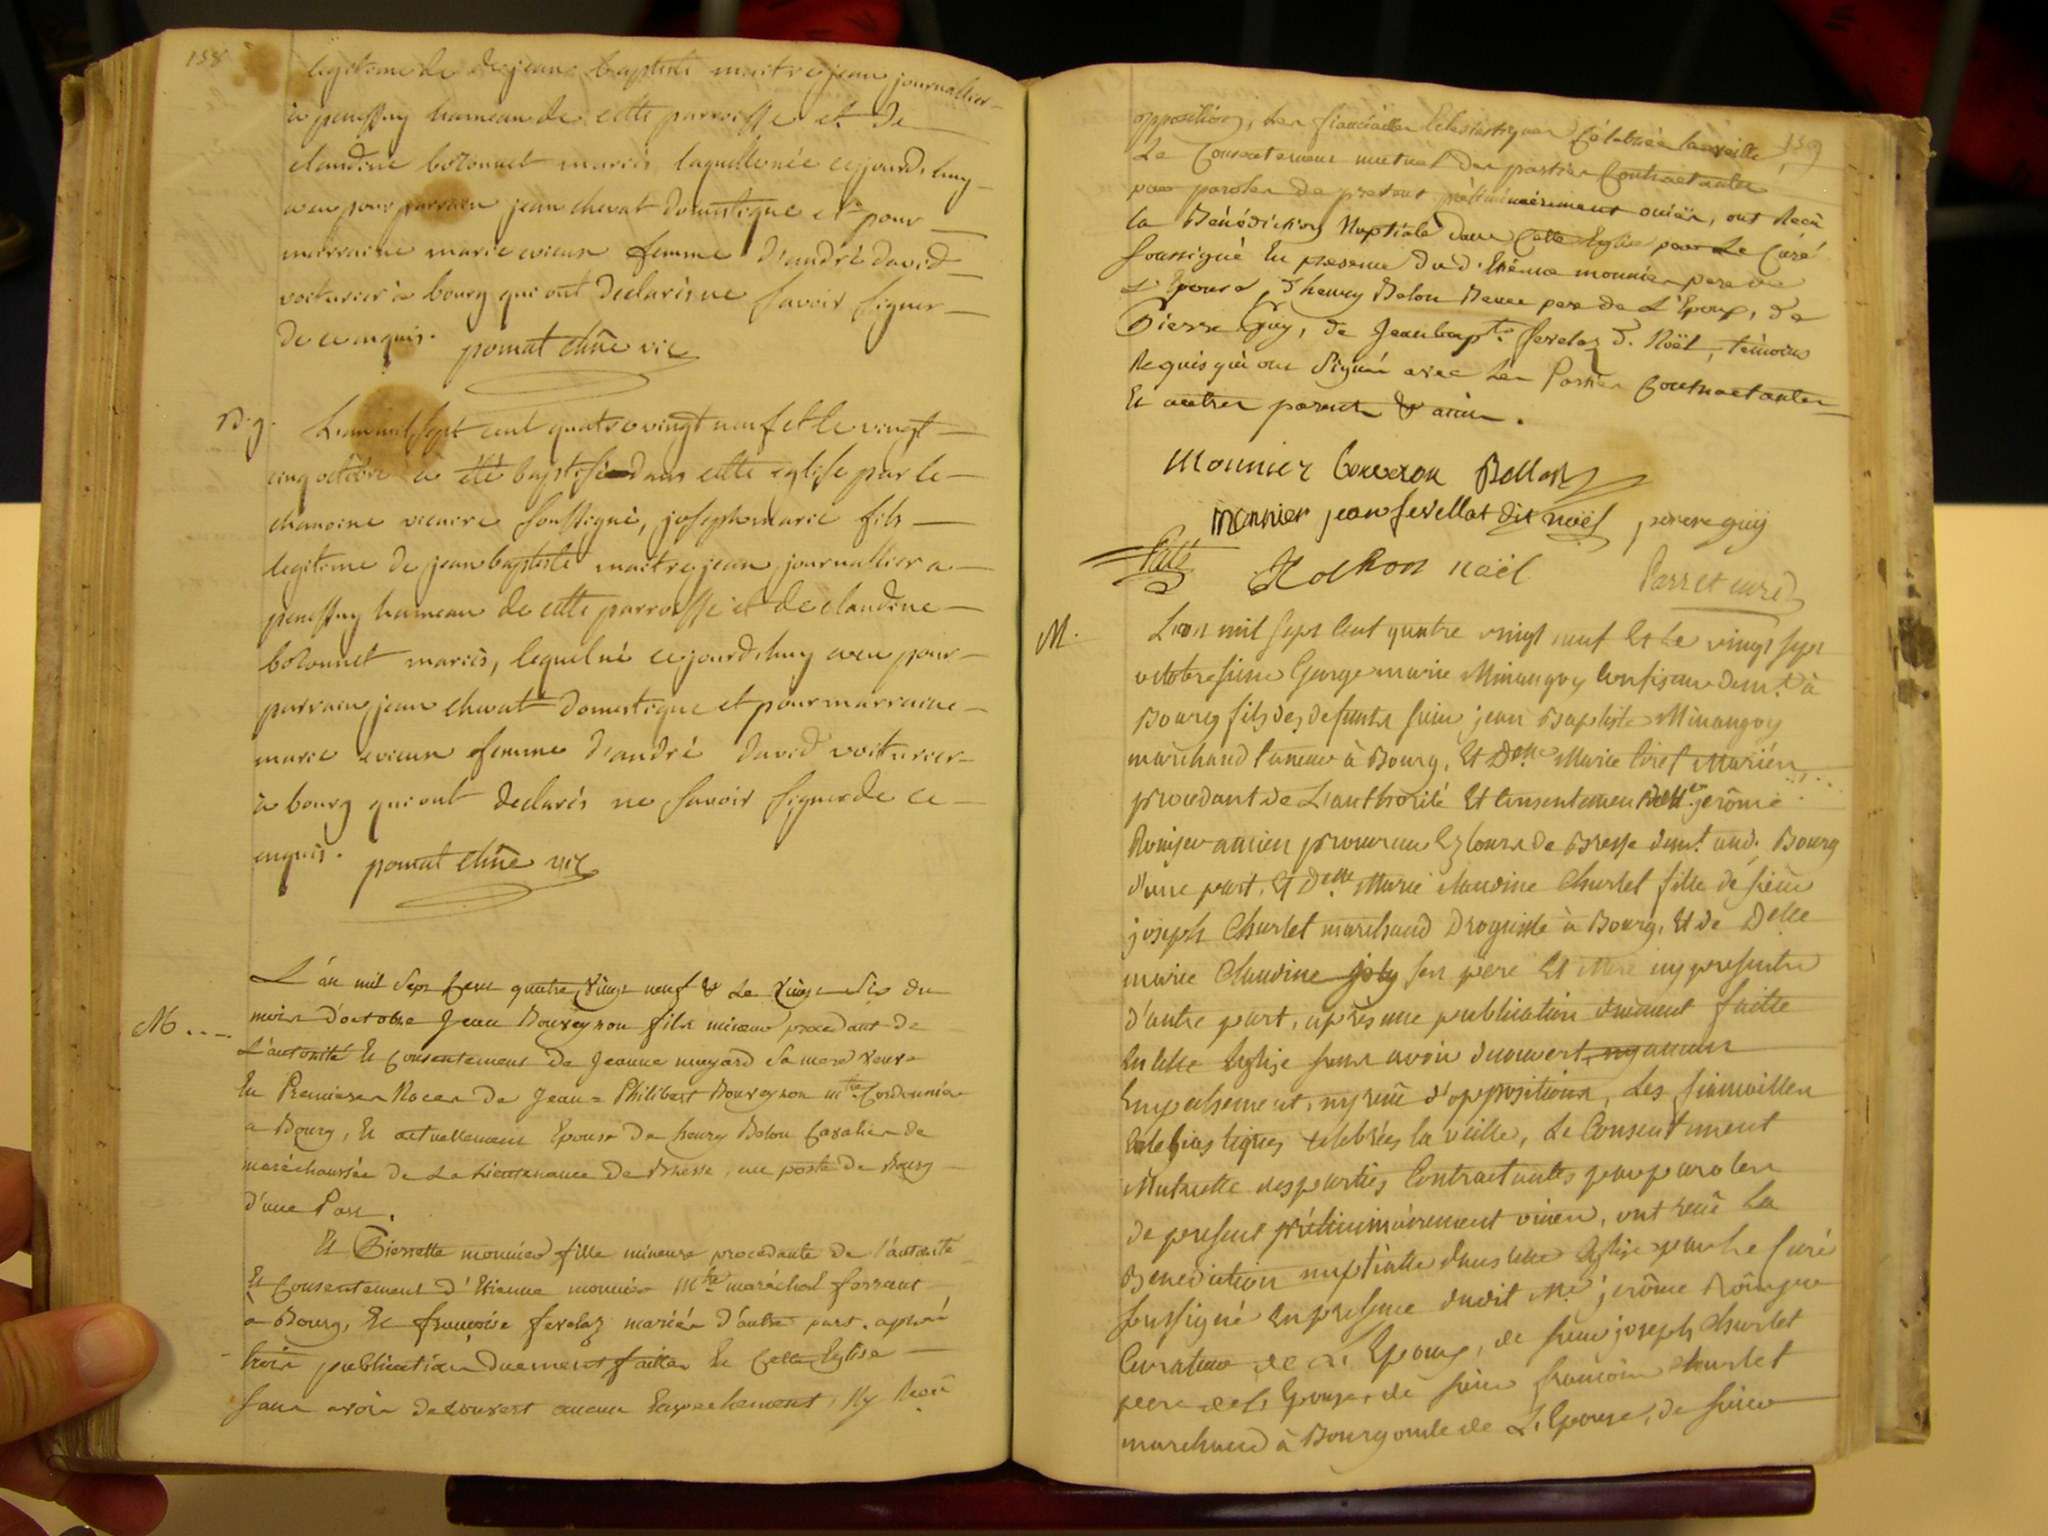 158
legitime de jean baptiste maitrejean journallier
à penessuy hameau de cette parroisse et de
claudine bozonnet mariés laquelle née ce jourd'huy
a eu pour parrain jean chevat domestique et pour
marraine marie vieux femme d'andré david
voiturier à bourg qui ont declarés ne savoir signer
de ce enquis. pomat chne vic
B. g. L'an mil sept cent quatre vingt neuf et le vingt
cinq octobre a été baptisé dans cette eglise par le
chanoine vicaire soussigné, joseph marie fils
legitime de jean baptiste maitrejean journallier a
penessuy hameau de cette parroisse et de claudine
bozonnet mariés, lequel né ce jourd'huy a eu pour
parrain jean chevat domestique et pour marraine
marie vieux femme d'andré david voiturier
à bourg qui ont declarés ne savoir signer de ce
enquis. pomat chne vic
M L'an mil sept cent quatre vingt neuf & le vingt six du
mois d'octobre Jean Bouveyron fils mineur procedant de
L'autorité et consentement de Jeanne sa mere veuve
En Premieres Noces de Jean Philibert Bouveyron mtre Cordonnier
a Bourg, et actuellement Epouse de henry Belou Cavalier de
maréchaussée de La Lieutenance de Bresse, au poste de Bourg
d'une Part.
Et Pierrette monnier fille mineure procedante de l'autorité
Et consentement d'Etienne monnier Mtre maréchal ferrant
a Bourg, Et françoise fevelaz mariés d'autre part. après
trois publications duement faittes En Cette Eglise
sans avoir decouvert aucun Empechement, Ny Reçu
159
opposition, les fiancailles Eclesiastiques Célébrées la veille,
Le Consentement mutuel des parties Contractantes
par paroles de present préliminairement ouïes, ont Reçu
la Bénédiction Nuptiale dans Cette Eglise par Le Curé
soussigné En presence dud. Etienne monnier pere de
L'Epouse, d'henry Belou Beau pere de L'Epoux, de
Pierre Guy, de Jean bapt. fevelaz d. Noël, témoins
Requis qui ont Signés avec Les Parties Contractantes
Et autres parents & amis.
Monnier bouveron Bellon
monnier jean fevellat dit noël pierre guy
Rochon noël Perret curé
M. L'an mil sept Cent quatre vingt neuf et Le vingt sept
octobre sieur George marie Minangoy Confiseur demt à
Bourg fils des defunts sieur jean Baptiste Minangoy
marchand taneur à Bourg, Et Delle Marie Mariés,
procedant de L'authorité Et Consentement de Me jerôme
ancien procureur Ez Cours de Bresse demt aud. Bourg
d'une part, Et Delle Marie claudine Churlet fille de sieur
joseph Churlet marchand Droguiste à Bourg, Et de Delle
marie Claudine joly ses père Et Mere icy presents
d'autre part, après une publication duement faitte
En cette Eglise sans avoir decouvert aucun
Empechement, ny reçu d'opposition, Les fiancailles
Ecclesiastiques celebrées la veille, Le Consentement
Mutuelle des parties Contractantes par paroles
de present préliminairement ouies, ont reçu La
Benediction nuptialle dans cette Eglise par Le Curé
soussigné En presence dudit Me jerôme
Curateur de L'Epoux, de sieur joseph Churlet
pere de L'Epouse, de sieur francois Churlet
marchand à Bourg oncle de L'Epouse, de sieur